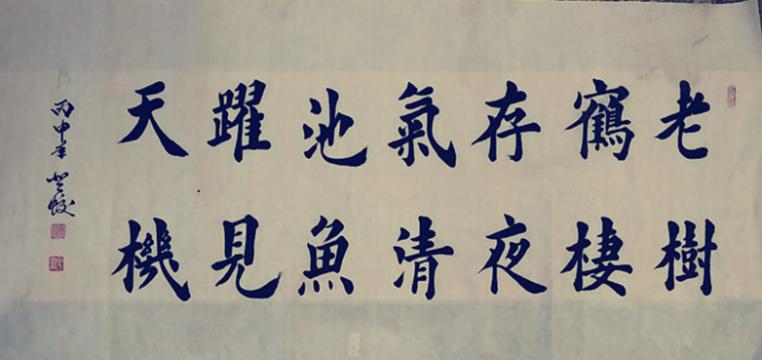 老樹
鶴棲
存夜
氣清
池魚
躍見
天機
丙申年